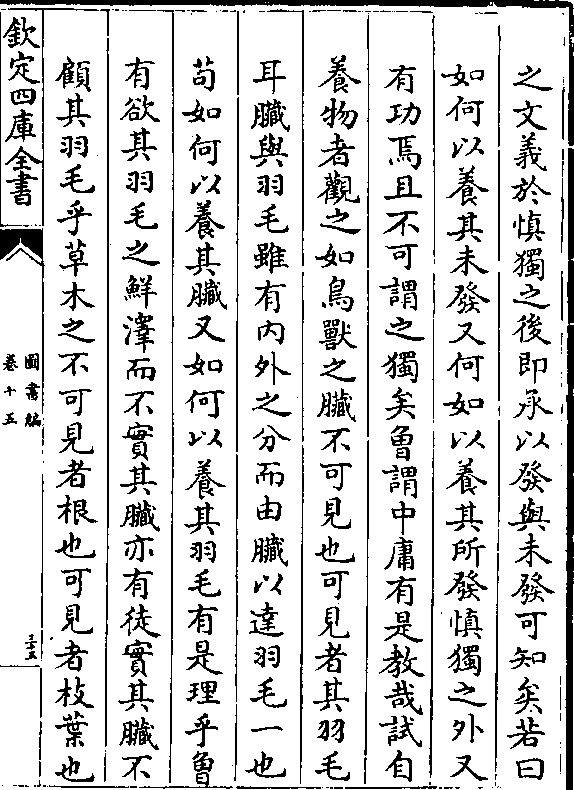 之文義於慎獨之後即承以發與未發可知矣若曰
如何以養其未發又何如以養其所發慎獨之外又
有功焉且不可謂之獨矣曾謂中庸有是教哉試自
養物者觀之如鳥獸之臟不可見也可見者其羽毛
耳臟與羽毛雖有內外之分而由臟以達羽毛一也
苟如何以養其臟又如何以養其羽毛有是理乎曾
有欲其羽毛之鮮澤而不實其臟亦有徒實其臟不
顧其羽毛乎草木之不可見者根也可見者枝葉也
欽定四庫全書
圖書編
卷十五
三十五